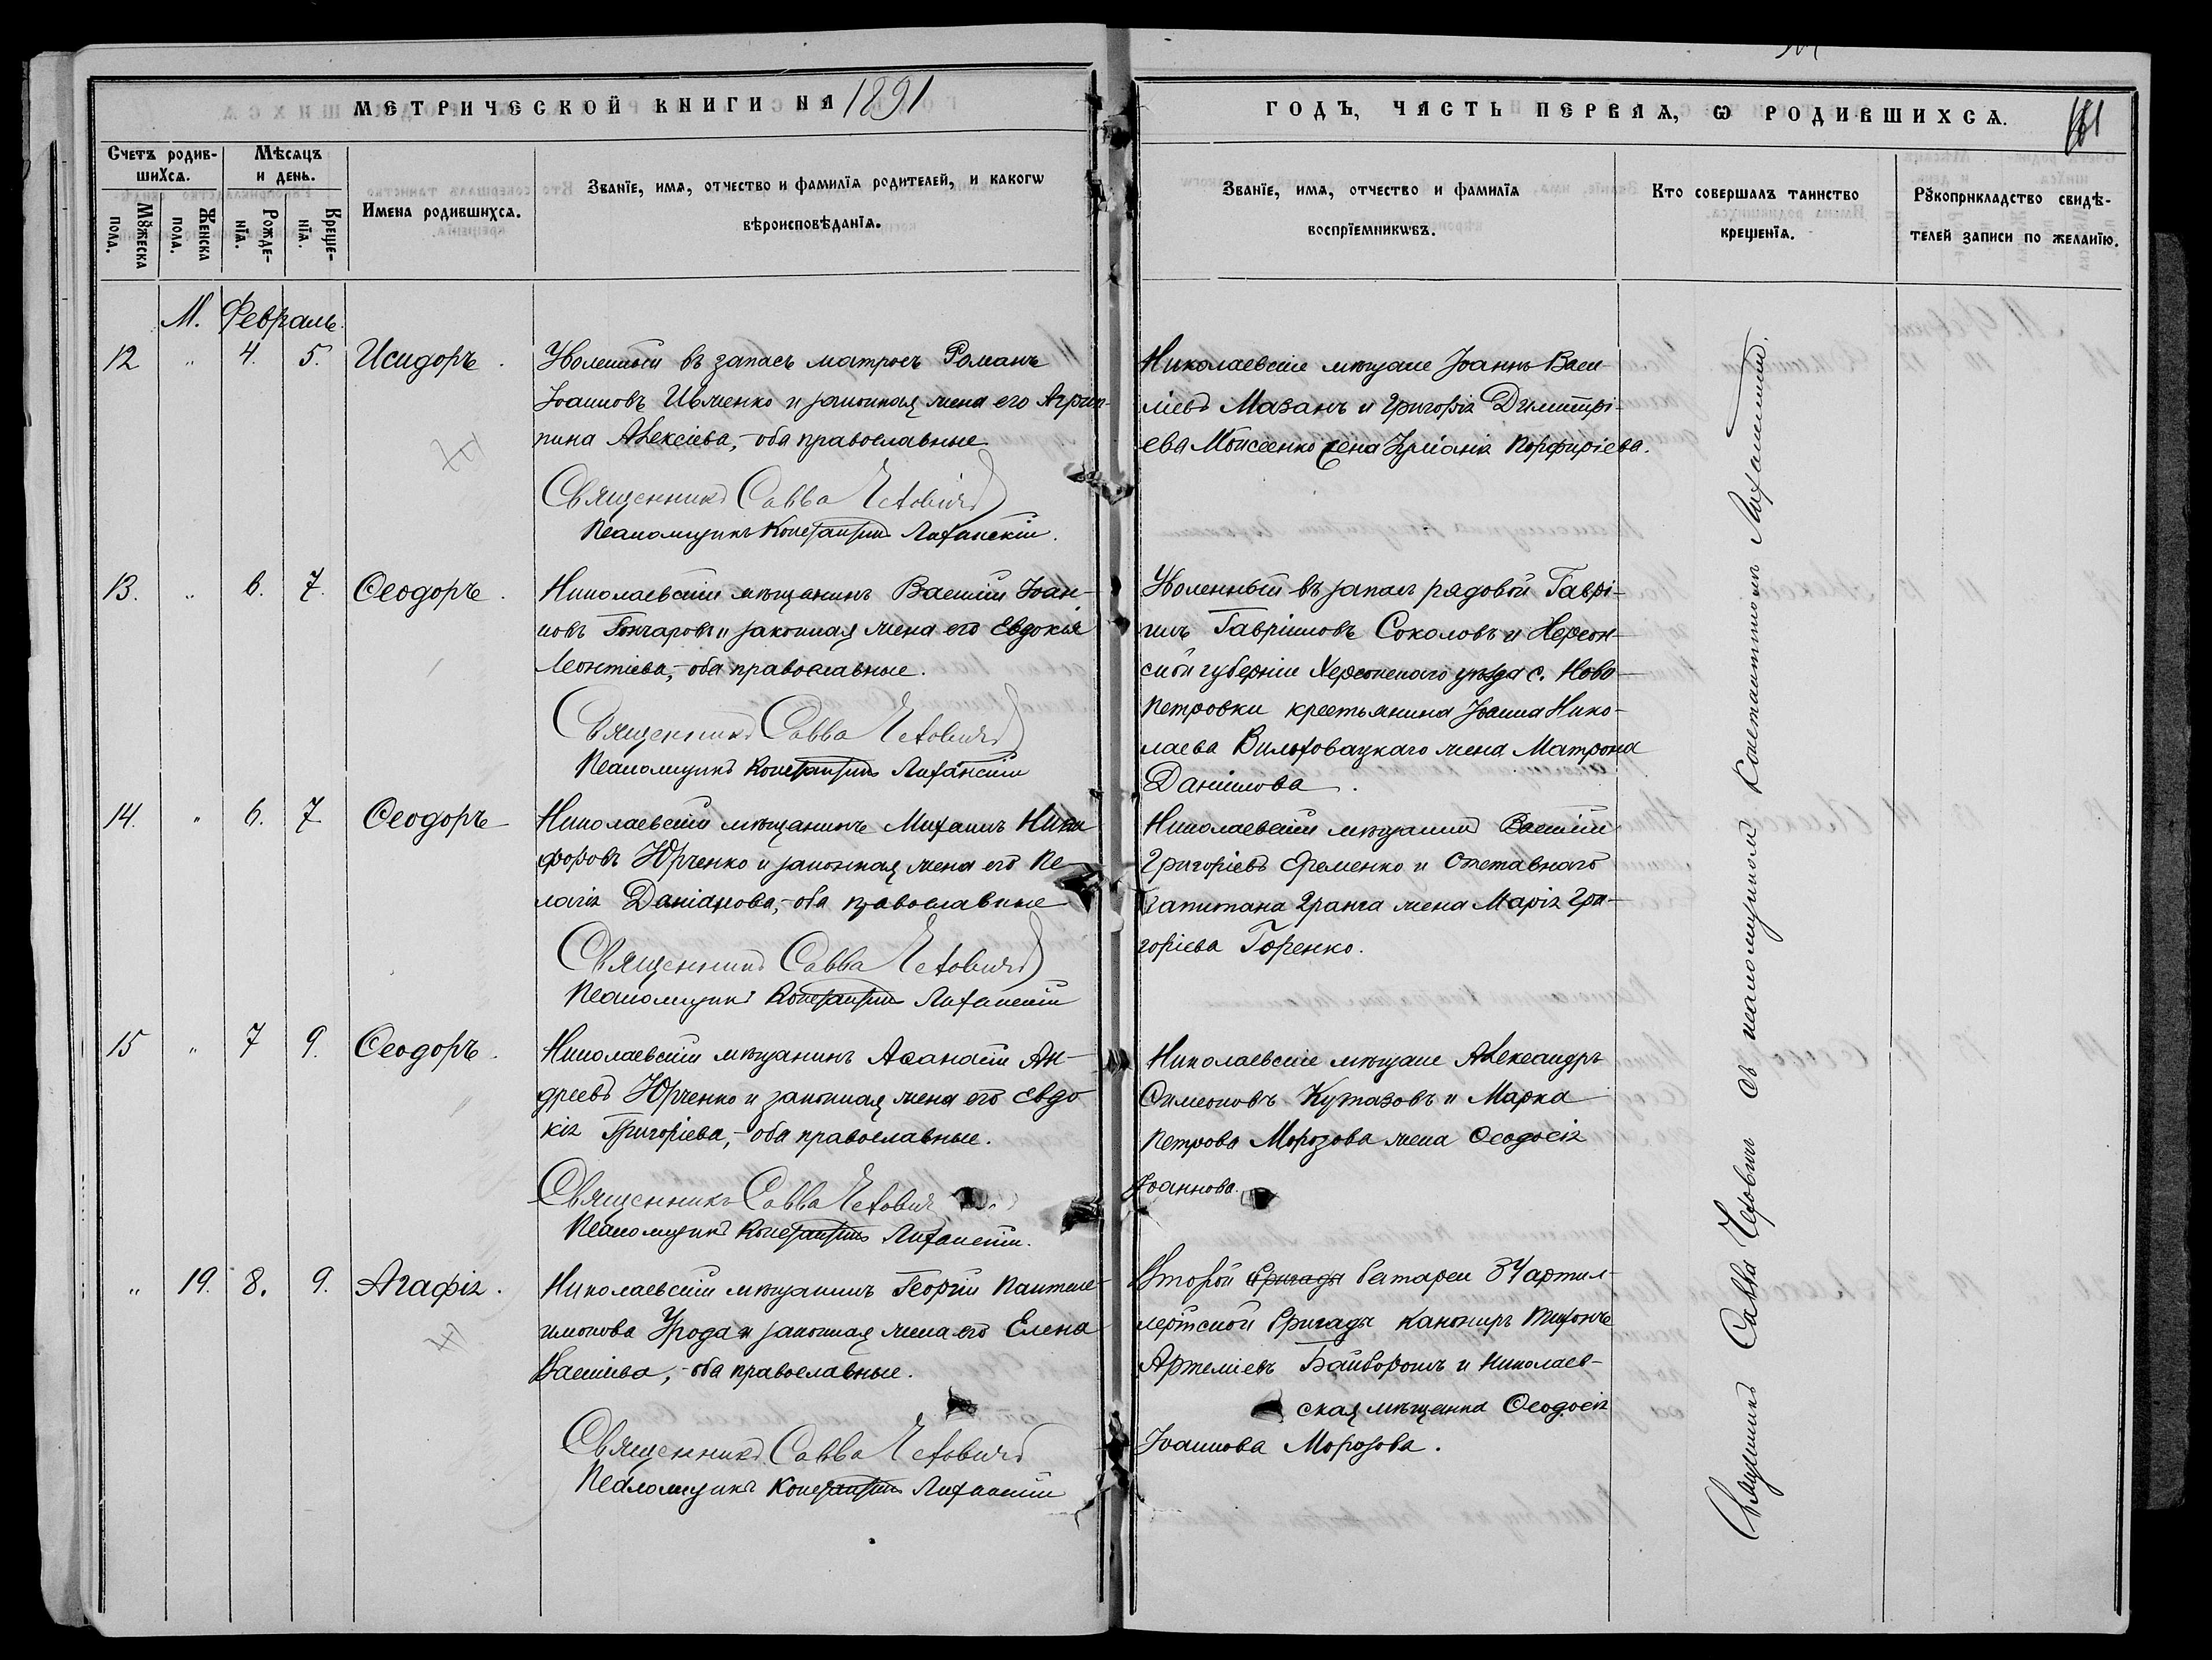 МЕТРИЧЕСКОЙ КНИГИ НА 1891
ГОДЪ, ЧАСТЬ ПЕРВАЯ, Ѡ РОДИВШИХСѦ.
161
Счетъ родив-
шихсѧ.
Мѣсяцъ
и день.
Мꙋжеска
пола.
Женска
пола.
Рожде-
нїѧ.
Креще-
нїѧ.
Имена родившихсѧ.
Званїе, имѧ, отчество и фамилїѧ родителей, и какогѡ
вѣроисповѣданїѧ.
Званїе, имѧ, отчество и фамилїѧ
воспрїемникѡвъ.
Кто совершалъ таинство
крещенїѧ.
Рꙋкоприкладство свидѣ-
телей записи по желанїю.
М. Февраль.
12 " 4. 5. Исидоръ.
Уволенный въ запасъ матросъ Романъ
Іоанновъ Ивченко и законная жена его Агрип-
пина Алексіева, - оба православные
Священникъ Савва Чехович
Псаломщикъ Константинъ Лиханскій.
Николаевскіе мѣщане Іоаннъ Васи-
ліевъ Мазанъ и Григорія Димитрі-
ева Моисеенко жена Іуліанія Порфиріева.
13. " 6. 7. Ѳеодоръ.
Николаевскій мѣщанинъ Василій Іоан-
новъ Гончаровъ и законная жена его Евдокія
Леонтіева, - оба православные.
Священникъ Савва Чехович
Псаломщикъ Константинъ Лиханскій
Уволенный въ запасъ рядовой Гаврі-
илъ Гавріиловъ Соколовъ и Херсон-
ской губерніи Херсонскаго уѣзда с. Ново-
Петровки крестьянина Іоанна Нико-
лаева Вильховацкаго жена Матрона
Даніилова.
14. " 6. 7. Ѳеодоръ
Николаевскій мѣщанинъ Михаилъ Ники
форовъ Юрченко и законная жена его Пе-
лагія Даміанова, - оба православные
Священникъ Савва Чехович
Псаломщикъ Константинъ Лиханскій
Николаевскій мѣщанинъ Василій
Григоріевъ Яременко и Отставнаго
Капитана 2ранга жена Марія Гри-
горіева Горенко.
15 " 7 9. Ѳеодоръ.
Николаевскій мѣщанинъ Аѳанасій Ан-
дреевъ Юрченко и законная жена его Евдо
кія Григоріева, - оба православные.
Священникъ Савва Чехович
Псаломщикъ Константинъ Лиханскій.
Николаевскіе мѣщане Александръ
Симеоновъ Кутазовъ и Марка
Петрова Морозова жена Ѳеодосія
Іоаннова.
" 19. 8. 9. Агафія.
Николаевскій мѣщанинъ Георгій Пантеле-
имонова Урода и законная жена его Елена
Василіева, - оба православные.
Священникъ Савва Чехович
Псаломщикъ Константинъ Лиханскій
Второй бригады батареи 34 артил-
лерійской бригады канониръ Тихонъ
Артеміевъ и Николаев-
ская мѣщанка Ѳеодосія
Іоаннова Морозова.
Священникъ Савва Чеховичъ съ псаломщикомъ Константиномъ Лиханскимъ.